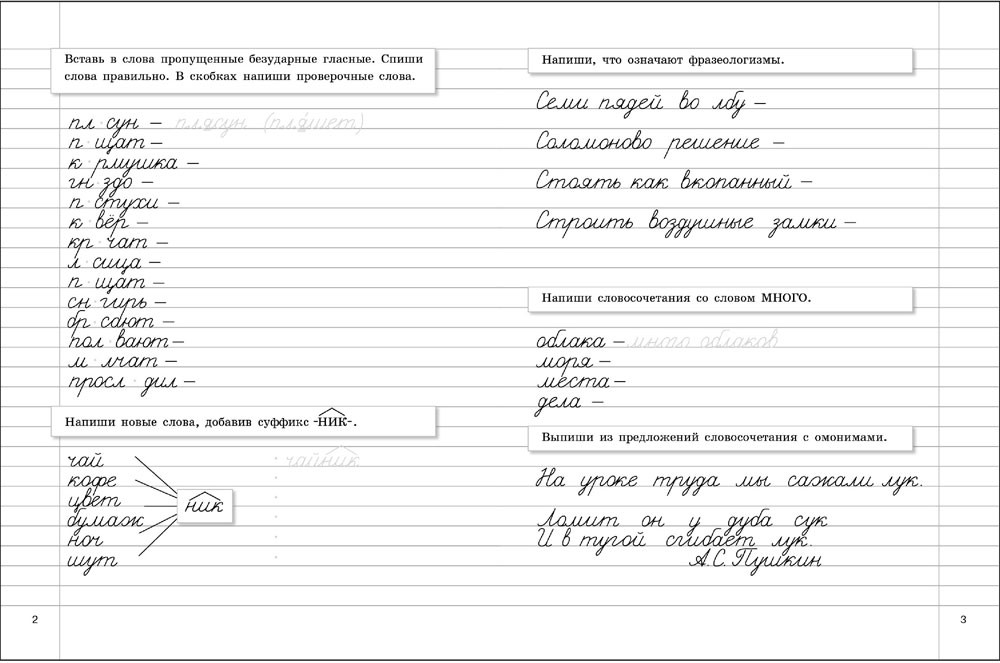 Вставь в слова пропущенные безударные гласные. Спиши
слова правильно. В скобках напиши проверочные слова.
пл · сун – плясун (пляшет)
п · щат –
к · рмушка –
гн · здо –
п · стухи –
к · вёр –
кр · чат –
л · сица –
п · щат –
сн · гирь –
бр · сают –
пол · вают –
м · лчат –
просл · дил –
Напиши новые слова, добавив суффикс -НИК-.
чай · чайник
кофе ·
цвет ·
ник
бумаж ·
ноч ·
шут ·
2
Напиши, что означают фразеологизмы.
Семи пядей во лбу –
Соломоново решение –
Стоять как вкопанный –
Строить воздушные замки –
Напиши словосочетания со словом МНОГО.
облака – много облаков
моря –
места –
дела –
Выпиши из предложений словосочетания с омонимами.
На уроке труда мы сажали лук.
Ломит он у дуба сук
И в тугой сгибает лук.
А.С. Пушкин
3